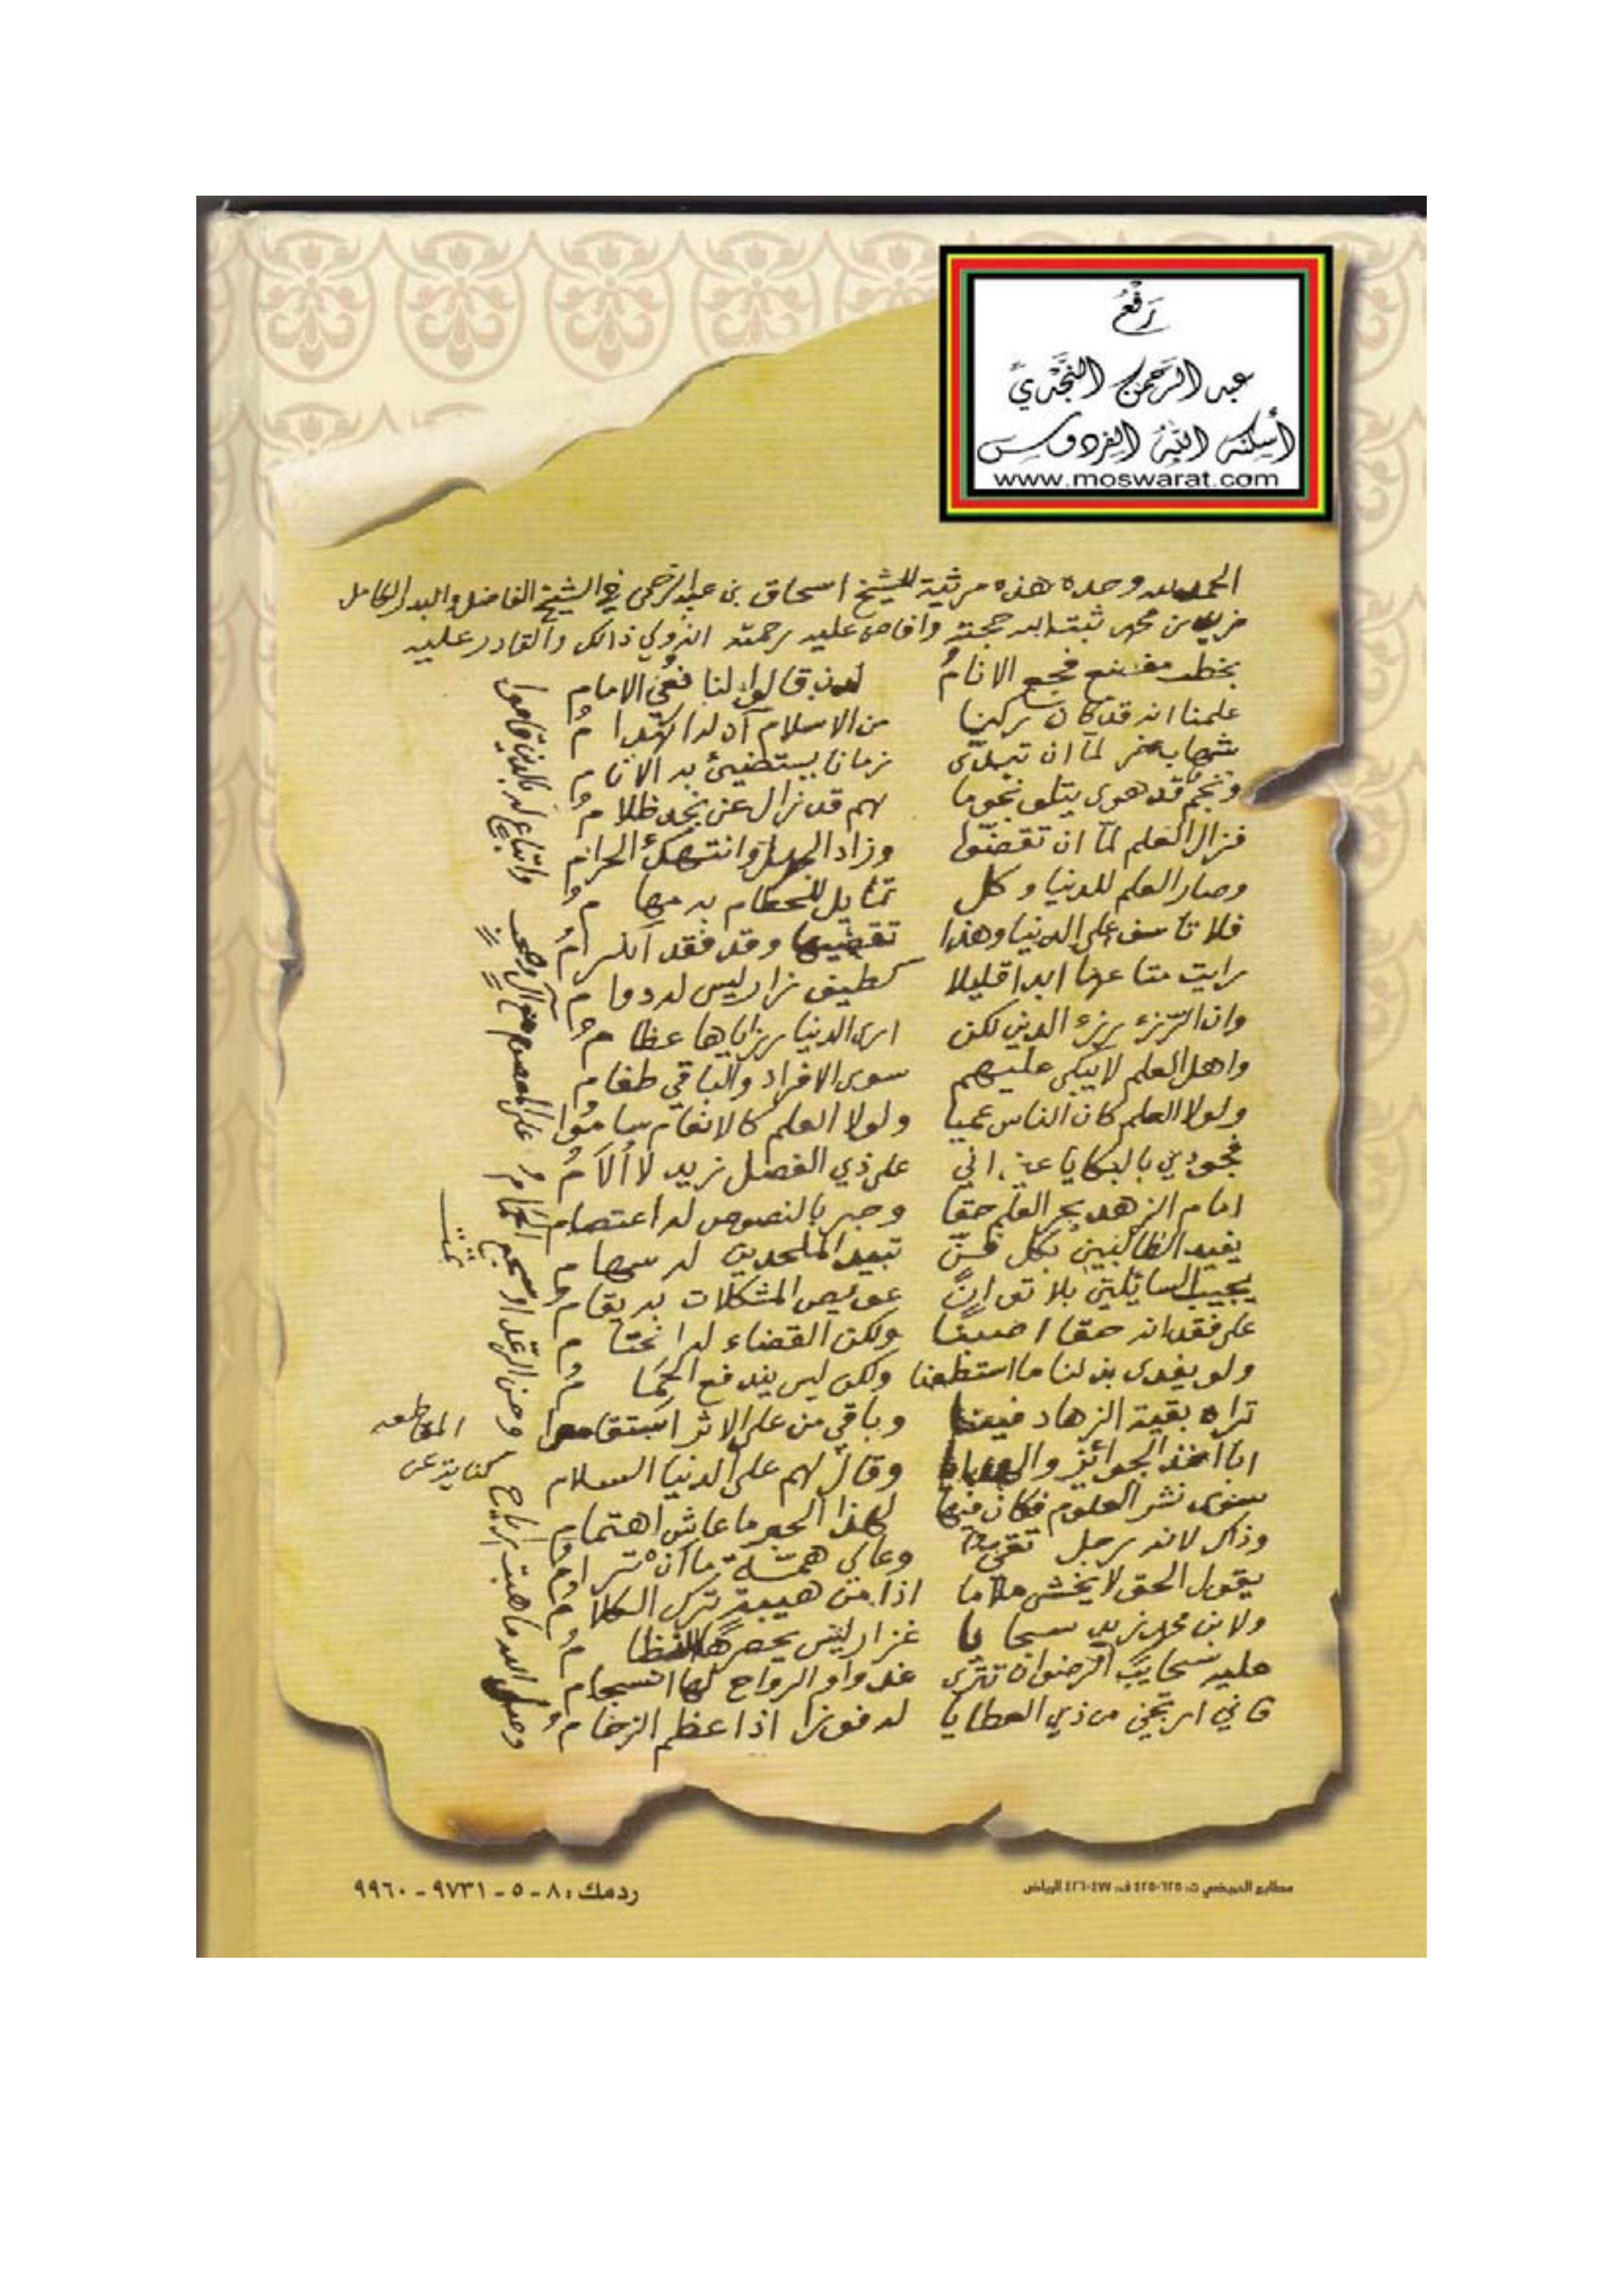 رَفْعُ
عبد الرَّحمن النَّجْدِيّ
أسكنه اللّهُ الفردوس
www.moswarat.com
الحمد لله وحده هذه مرثية للشيخ اسحاق بن عبد الرحمن في الشيخ الفاضل والبدر الكامل
بن محمد ثبت الله حجته وافاض عليه رحمته انه ولي ذالك والقادر عليه
بخطب مفضع فجع الانامُ لدن قالوا لنا نعي الامام
علمنا انه قد كان ركنا من الاسلام آن له انهدامُ
شهاب لمّا ان تبدّى زمانا يستضيئ به الانام
ونجم قد هوى يتلو نجوما بهم قد زال عن نجد ظلامُ
فزال العلم لمّا ان تقضّوا وزاد الجهل وانتهك الحرام
وصار العلم للدنيا وكل تمايل للحطام به
فلا تأسف على الدنيا وهذا تقضيها وقد فقد الكرامُ
رايت متاعها ابدا قليلا كطيف زار ليس له دوام
وان الرزء رزء الدين لكن ارى الدنيا رزاياها عظامُ
واهل العلم لا يبكى عليهم سوى الافراد والباقي طغام
ولولا العلم كان الناس عميا ولولا العلم كالانعام ساموا
فجودي بالبكا يا عين اني على ذي الفضل زيد لا أُلاَمُ
امام الزهد بحر العلم حقا وحبر بالنصوص له اعتصام
يفيد الطالبين بكل فنّ تبيد الملحدين له سهام
يجيب السائلين بلا توانٍ عويص المشكلات به يقام
على فقدانه حقا اصبنا ولكن القضاء له انحتام
ولو يفدى بذلنا ما استطعنا ولكن ليس يندفع الحِمَامُ
تراه بقية الزهاد فينا وباقي من على الاثر استقاموا
ابا اخذ الجوائز والهدايا وقال لهم على الدنيا السلام
سوى نشر العلوم فكان فيها لهذا الحبر ما عاش اهتمام
وذاك لانه رجل تقيّ وعالي همّة ما ان ترامُ
يقول الحق لا يخشى ملاما اذا من هيبة ترك الكلامُ
ولابن محمد زيد سجايا غزار ليس يحصرها النظامُ
عليه سحايب الرضوان تترى غدوا والرواح لها انسجام
فاني ارتجي من ذي العطايا له فوزا اذا عظم الزحامُ
وصلى الله ما هبت رياح وحن الرعد او سجم الغمامُ
على المعصوم مع آل وصحب واتباع لهم بالدين قاموا
تمت
كناية عن
ردمك: ٨ - ٥ - ٩٧٣١ - ٩٩٦٠
مطابع الحميضي ت: ٤٢٥٠٦٢٥ ف: ٤٢٦٠٤٧٧ الرياض